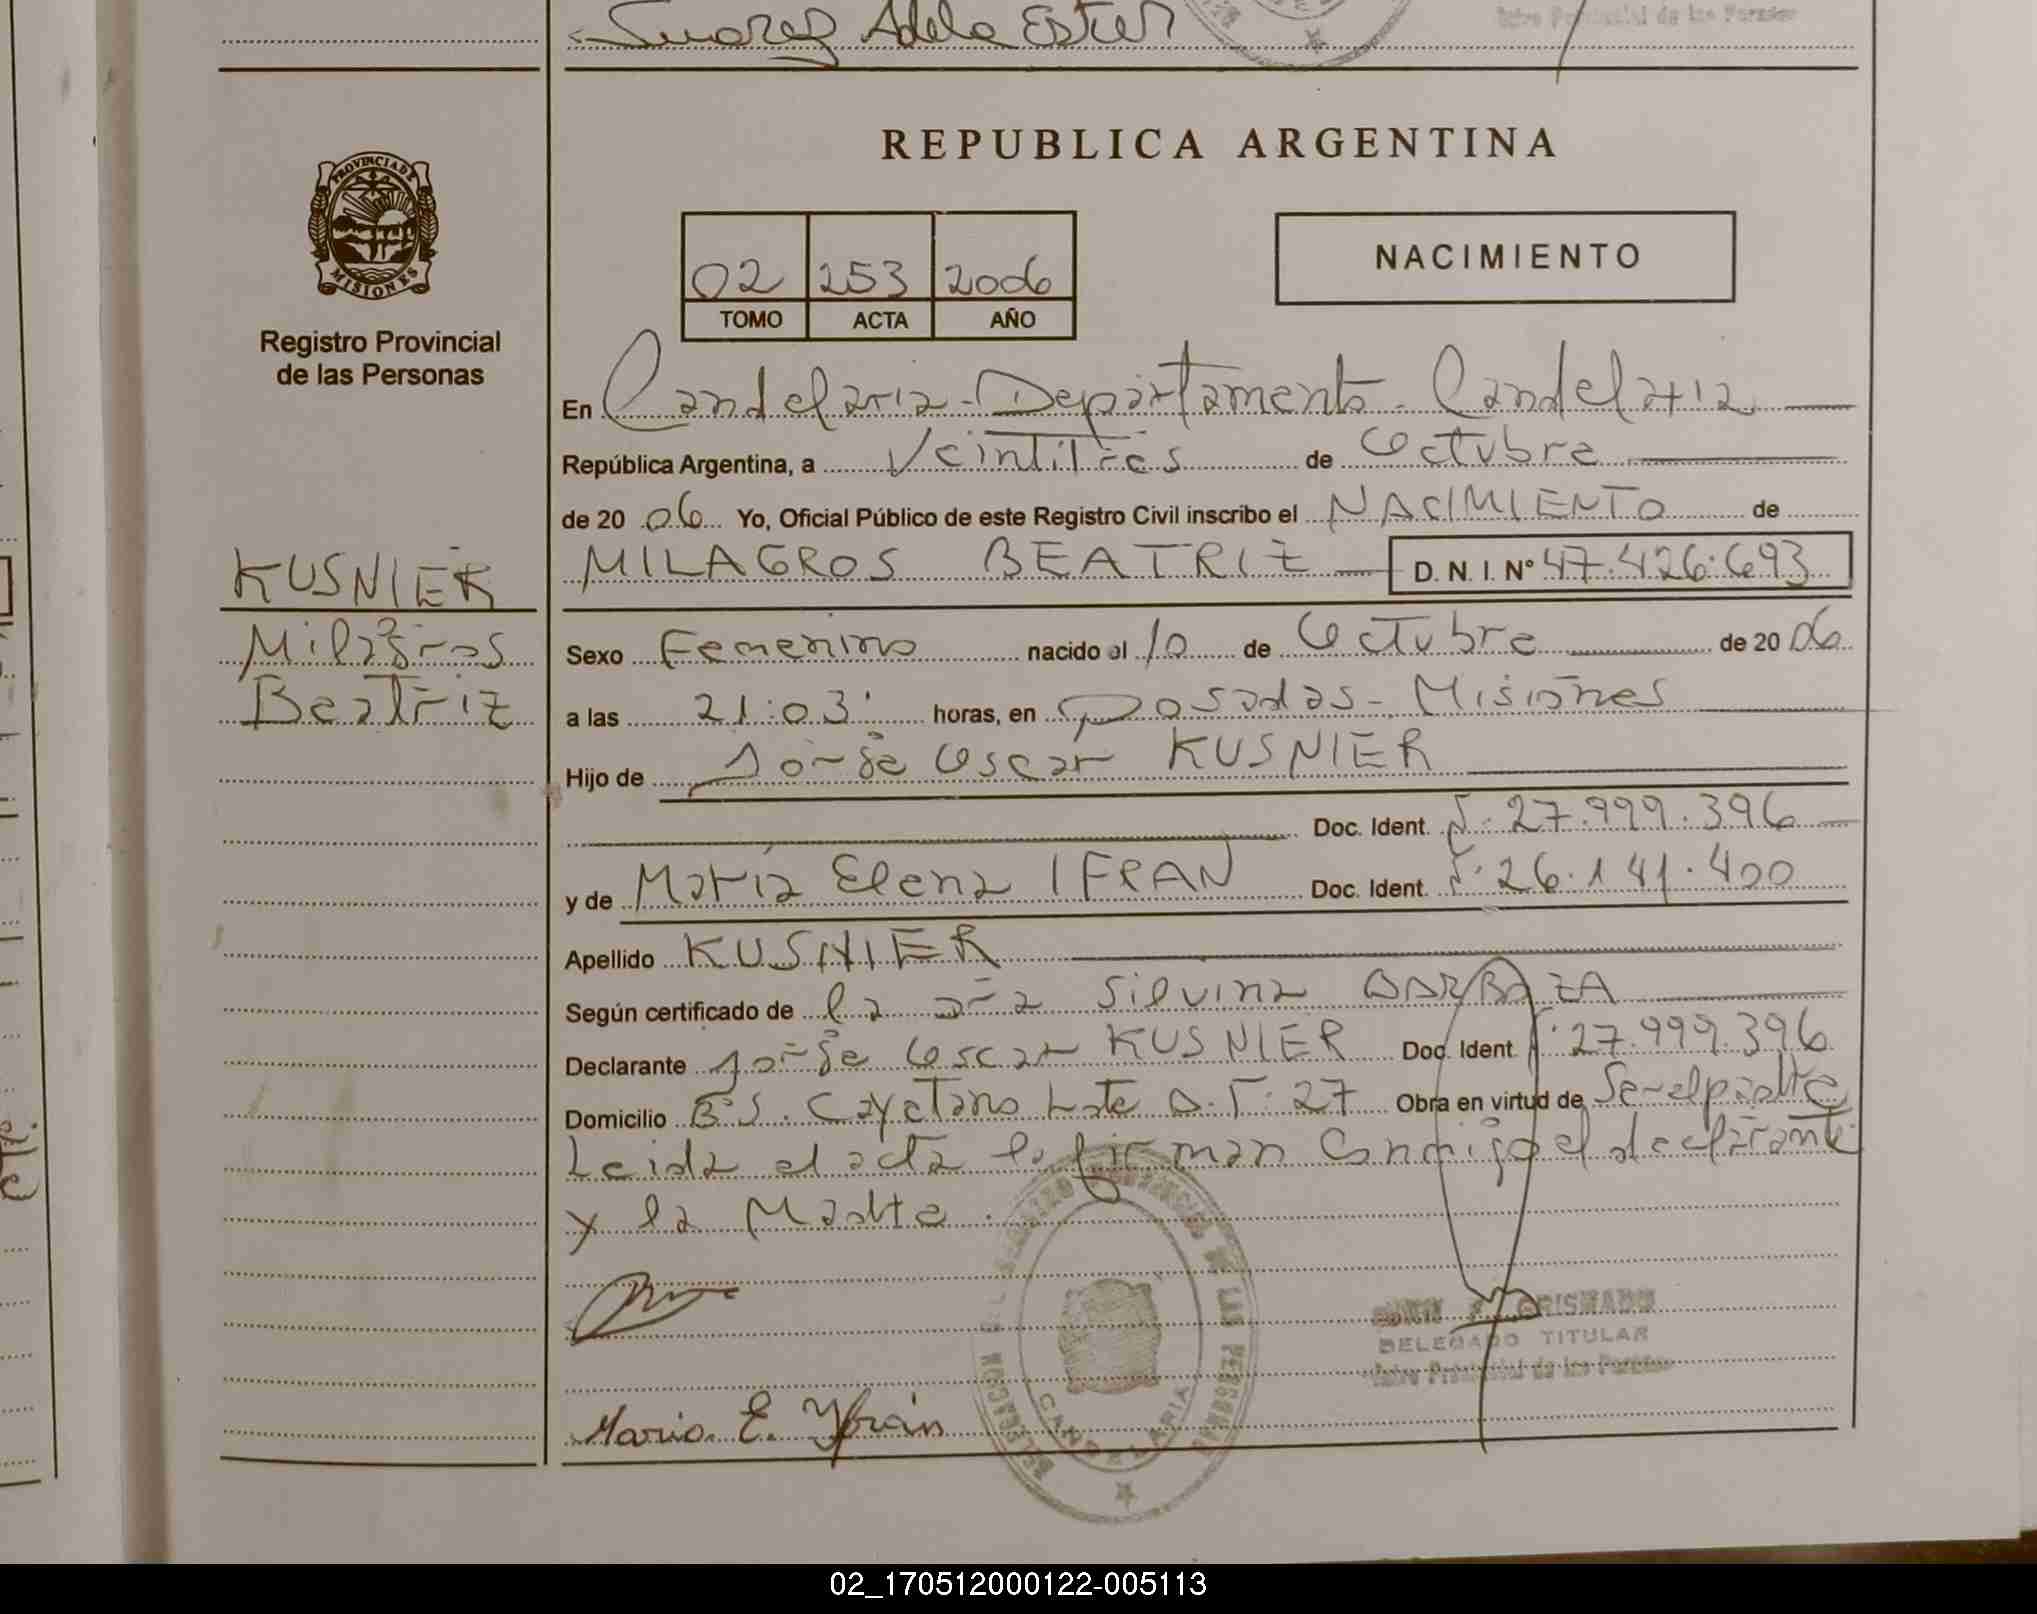 Suarez Adela Ester
REPUBLICA ARGENTINA
PROVINCIA DE MISIONES
Registro Provincial
de las Personas
02 253 2006
TOMO ACTA AÑO
NACIMIENTO
En Candelaria - Departamento Candelaria
República Argentina, a Veintitrés de Octubre
de 20 06 Yo, Oficial Público de este Registro Civil inscribo el NACIMIENTO de
KUSNIER
Milagros
Beatriz
MILAGROS BEATRIZ D. N. I. Nº 47.426.693
Sexo Femenino nacido el 10 de Octubre de 20 06
a las 21:03 horas, en Posadas - Misiones
Hijo de Jorge Oscar KUSNIER
Doc. Ident. 27.999.396
y de María Elena IFRAN Doc. Ident. 26.141.400
Apellido KUSNIER
Según certificado de la Silvina BARBOZA
Declarante Jorge Oscar KUSNIER Doc. Ident. 27.999.396
Domicilio Bº S. Cayetano Lote 27 Obra en virtud de Ser el padre
Leida el acta la firman Conmigo el declarante
y la Madre.
DELEGACION REGISTRO PROVINCIAL DE LAS PERSONAS
CANDELARIA
GRISMADO
DELEGADO TITULAR
Provincial de las Personas
Maria E. Yfrán
02_170512000122-005113